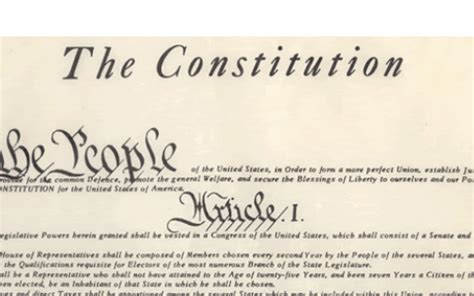 The Constitution
the People of the United States, in Order to form a more perfect Union, establish Jus
rovide for the common Defence, promote the general Welfare, and secure the Blessings of Liberty to ourselves and our Pos
ONSTITUTION for the United States of America.
Article I.
egislative Powers herein granted shall be vested in a Congress of the United States, which shall consist of a Senate and
House of Representatives shall be composed of Members chosen every second Year by the People of the several States, an
the Qualifications requisite for Electors of the most numerous Branch of the State Legislature.
l be a Representative who shall not have attained to the Age of twenty-five Years, and been seven Years a Citizen of
en elected, be an Inhabitant of that State in which he shall be chosen.
es and direct Taxes shall be apportioned among the several States which may be included within this Union, according